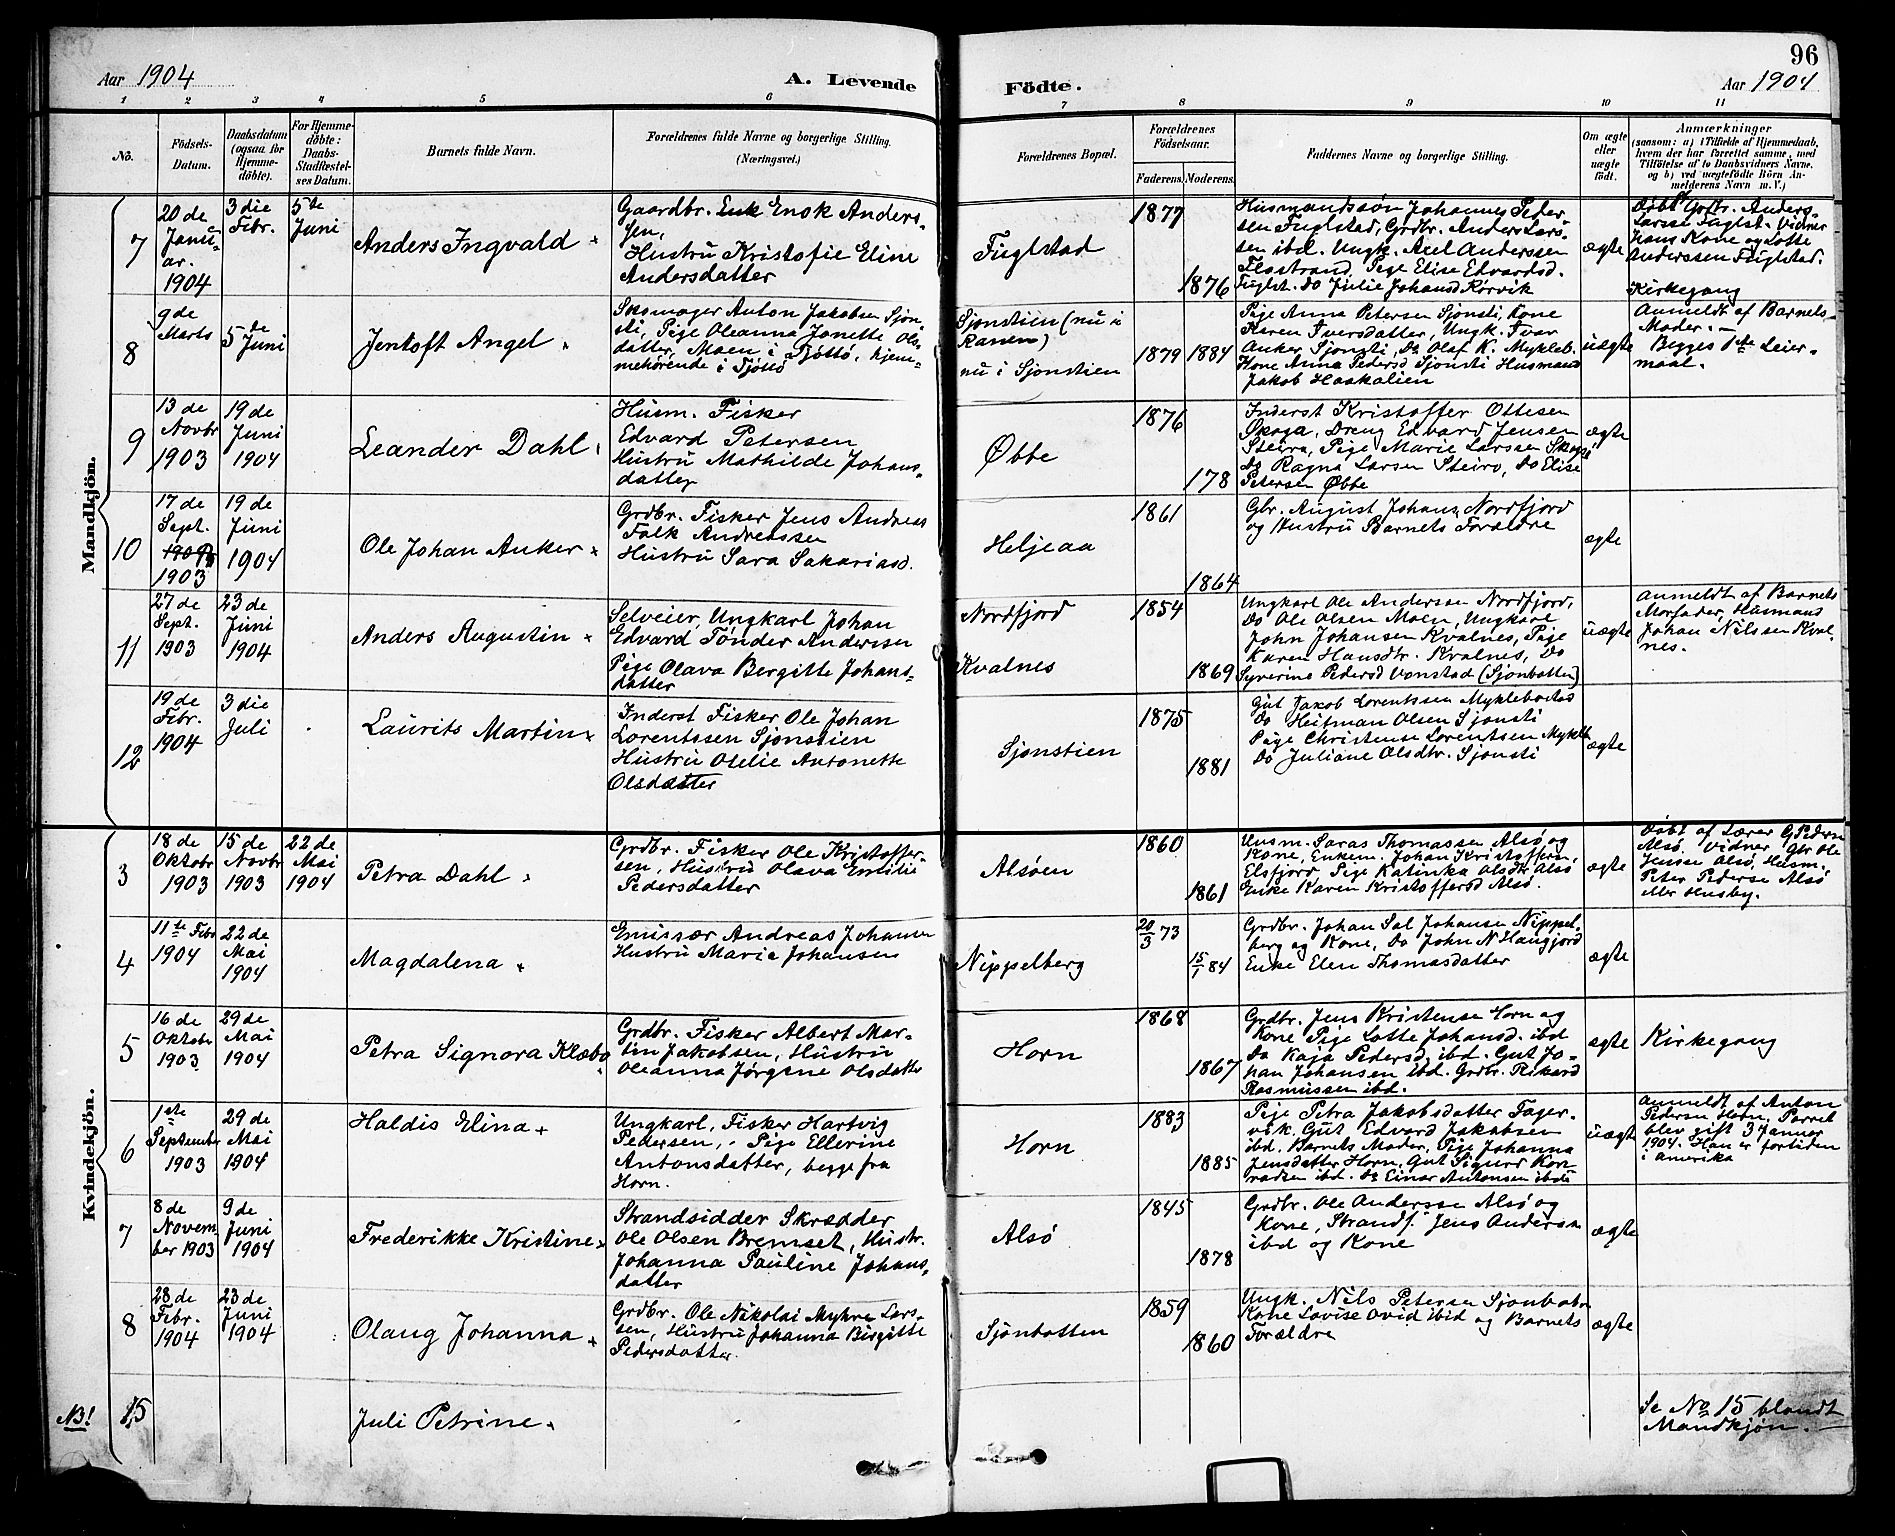 96
Aar 1904 A. Levende Födte. Aar 1904
1 2 3 4 5 6 7 8 9 10 11
No.
Födsels-
Datum.
Daabsdatum
(ogsaa for
Hjemme-
döbte).
For Hjemme-
döbte:
Daabs-
Stadfæstel-
ses Datum.
Barnets fulde Navn.
Forældrenes fulde Navne og borgerlige Stilling.
(Næringsvei.)
Forældrenes Bopæl.
Forældrenes
Födselsaar.
Faderens. Moderens.
Faddernes Navne og borgerlige Stilling.
Om ægte
eller
uægte
födt.
Anmærkninger
(saasom: a) i Tilfælde af Hjemmedaab,
hvem der har forrettet samme, med
Tilföielse af to Daabsvidners Navne,
og b) ved uægtefödte Börn An-
melderens Navn m. V.)
Mandkjön.
7
20 de
Janu-
ar.
1904
3 die
Febr.
5te
Juni
Anders Ingvald
Gaardbr. Enk Enok Anders-
sen,
Hustru Kristofie Eline
Andersdatter
Fuglstad
1877
1876
Husmandssøn Johannes Peder-
sen Fuglstad, Grdbr. Anders Lars-
sen ibd. Ungk. Axel Anderssen
Flostrand, Pige Elise Edvardsd.
Fuglst. Do Julie Johansd Rörvik
ægte
Döbt af Grdbr. Anders
Larsse Fuglst. Vidner
hans Kone og Lotte
Anderssen Fuglstad.
Kirkegang
8
9 de
Marts
5 de
Juni
Jentoft Angel
Skomager Anton Jakobsen Sjon-
sti, Pige Oleanna Janette Ols-
datter, Moen i Tjöttö, hjem-
mehörende i Tjöttö
Sjonstien (nu i
Ranen)
nu i Sjonstien
1879 1884
Pige Anna Petersen Sjonsti, Kone
Karen Iversdatter, Ungk. Ivar
Anker Sjonsti, Do Olaf K. Mykleb.
Kone Anna Pedersd Sjonsti Husmand
Jakob Haakalien
uægte
Anmeldt af Barnets
Moder. —
Begges 1ste Leier-
maal.
9
13 de
Novbr
1903
19 de
Juni
1904
Leander Dahl
Husm. Fisker
Edvard Petersen
Hustru Mathilde Johans-
datter
Øbbe
1876
178
Inderst Kristoffer Ottesen
Skoga, Dreng Edvard Jensen
Steiro, Pige Marie Larssen Skoga
Do Ragna Larsen Steiro, Do Elise
Petersen Øbbe
ægte
10
17 de
Sept.
1903
19 de
Juni
1904
Ole Johan Anker
Grdbr. Fisker Jens Andreas
Falk Andreassen
Hustru Sara Sakariasd.
Heljeaa
1861
1864
Gbr. August Johans Nordfjord
og Hustru Barnets Forældre
ægte
11
27 de
Sept.
1903
23 de
Juni
1904
Anders Augustin
Selveier, Ungkarl Johan
Edvard Tönder Andersen
Pige Olava Bergitte Johans-
datter
Nordfjord
Kvalnes
1854
1869
Ungkarl Ole Anderssen Nordfjord,
Do Ole Olsen Moen, Ungkarl
John Johansen Kvalnes, Pige
Karen Hansdtr. Kvalnes, Do
Syverine Pedersd Vonstad (Sjonbotten)
uægte
Anmeldt af Barnets
Morfader, Husmans
Johan Nilssen Kval-
nes.
12
19 de
Febr.
1904
3 die
Juli
Laurits Martin
Inderst Fisker Ole Johan
Lorentssen Sjonstien
Hustru Otelie Antonette
Olsdatter
Sjonstien
1875
1881
Gut Jakob Lorentssen Myklebostad
Do Heitman Olsen Sjonsti
Pige Christense Lorentsen Mykleb
Do Juliane Olsdtr. Sjonsti
ægte
Kvindekjön.
3
18 de
Oktobr
1903
15 de
Novbr
1903
22 de
Mai
1904
Petra Dahl
Grdbr. Fisker Ole Kristoffer-
sen, Hustru Olava Emilie
Pedersdatter
Alsöen
1860
1861
Husm. Saras Thomassen Alsö og
Kone, Enkem. Johan Kristoffersn,
Elsfjord, Pige Katinka Olsdtr Alsö
Enke Karen Kristoffersd Alsö.
ægte
Döbt af Lærer G Peders
Alsö. Vidner Gbr Ole
Jensse Alsö, Husm.
Peter Pederse Alsö
eller Husby.
4
11te Febr
1904
22 de
Mai
1904
Magdalena
Emissær Andreas Johansen
Hustru Marie Johansen
Nippelberg
20/3 73
15/1 84
Grdbr. Johan Sal Johansen Nippel-
berg og Kone, Do John N Haugjord
Enke Elen Thomasdatter
ægte
5
16 de
Oktober
1903
29 de
Mai
1904
Petra Signora Klæbo
Grdbr. Fisker Albert Mar-
tin Jakobsen, Hustru
Oleanna Jörgine Olsdatter
Horn
1868
1867
Grdbr. Jens Kristensen Horn og
Kone Pige Lotte Johansd. ibd
Do Kaja Pedersd. ibd. Gut Jo-
han Johansen ibd. Grdbr. Rikard
Rasmussen ibd.
ægte
Kirkegang
6
1ste
September
1903
29 de
Mai
1904
Haldis Elina
Ungkarl, Fisker Hartvig
Pedersen, Pige Ellerine
Antonsdatter, begge fra
Horn.
Horn
1883
1885
Pige Petra Jakobsdatter Fager-
vik. Gut Edvard Jakobsen
ibd. Barnets Moder, Pige Johanna
Jensdatter Horn, Gut Sigurd Kon-
radsen ibd. Do Einar Antonsen ibd
uægte
Anmeldt af Anton
Pedersen Horn. Parret
blev gift 3 Januar
1904. Han er fortiden
i Amerika
7
8 de
Novem-
ber 1903
9 de
Juni
1904
Frederikke Kristine
Strandsidder Skrædder
Ole Olsen Bremset, Hustr.
Johanna Pauline Johans-
datter
Alsö
1845
1878
Grdbr. Ole Anderssen Alsö og
Kone, Strands. Jens Andersn
ibd og Kone
ægte
8
28 de
Febr.
1904
23 de
Juni
1904
Olaug Johanna
Grdbr. Ole Nikolai Myhre Lars-
sen, Hustru Johanna Birgitte
Pedersdatter.
Sjonbotten
1859
1860
Ungk. Nils Petersen Sjonbotn
Kone Lovise Ovid ibid og Barnets
Forældre
ægte
NB!
15
Juli Petrine
Se No 15 blandt
Mandkjön.